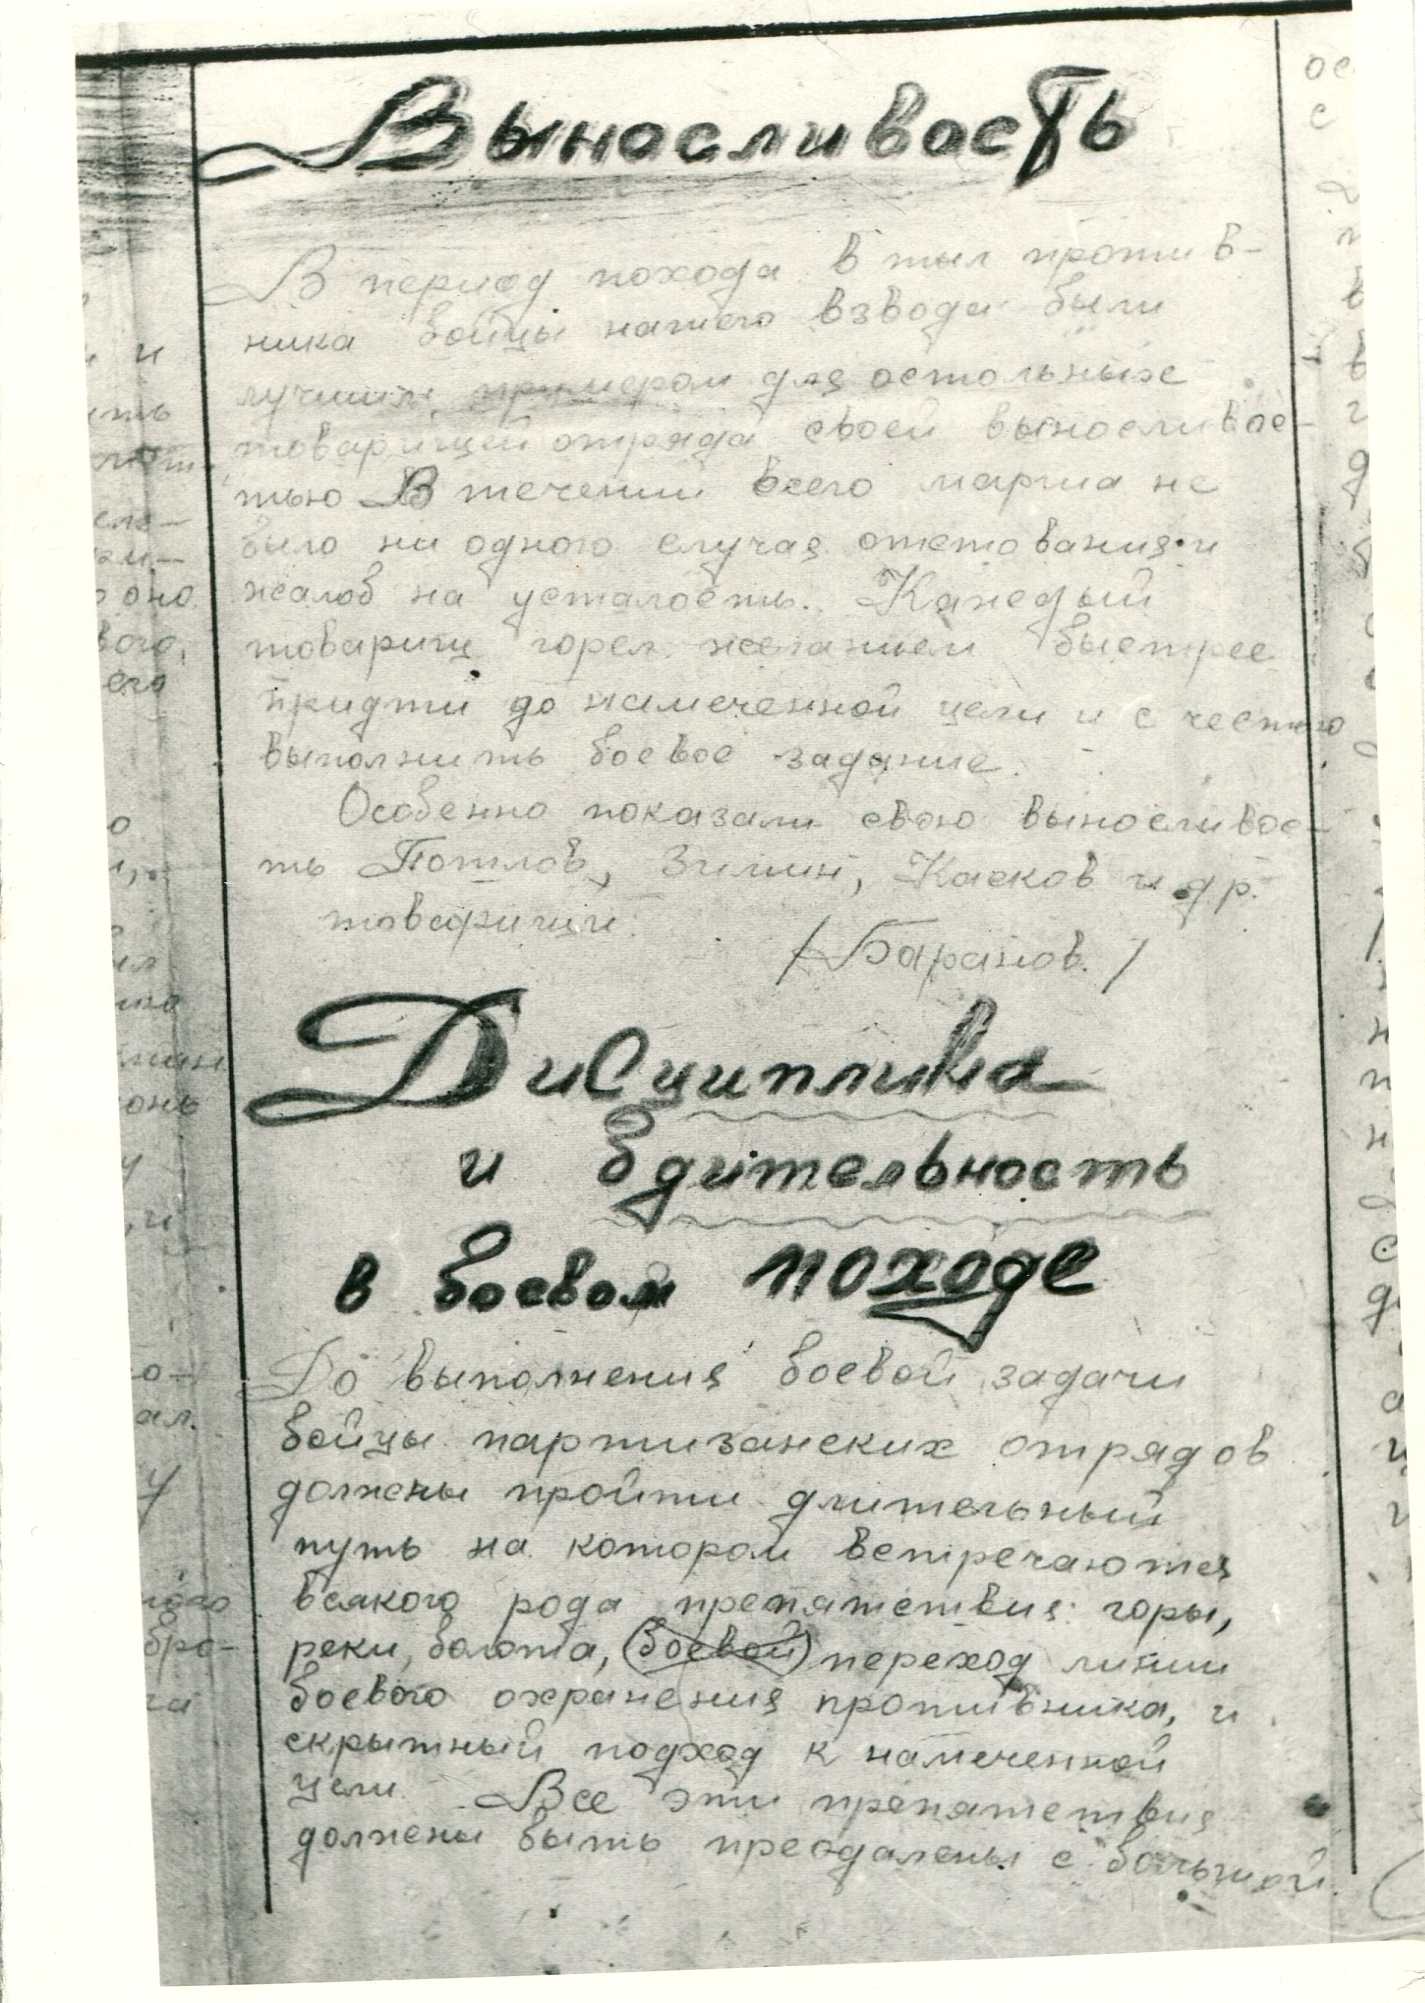 Выносливость
В период похода в тыл против-
ника бойцы нашего взвода были
лучшим примером для остольных
товарищей отряда своей выносливос-
тью В течении всего марша не
было ни одного случая отстования и
жалоб на усталость. Каждый
товарищ горел желанием быстрее
придти до намеченной цели и с честью
выполнить боевое задание.
Особенно показали свою выносливос-
ть Потлов, Зимин, Касков и др.
товарищи.
/Баранов./
Дисциплина
и бдительность
в боевом походе
До выполнения боевой задачи
бойцы партизанских отрядов
должны пройти длительный
путь на котором встречаются
всякого рода препятствия: горы,
реки, болота, (боевой) переход линии
боевого охранения противника, и
скрытный подход к намеченной
цели. Все эти препятствия
должны быть преодалены с большой